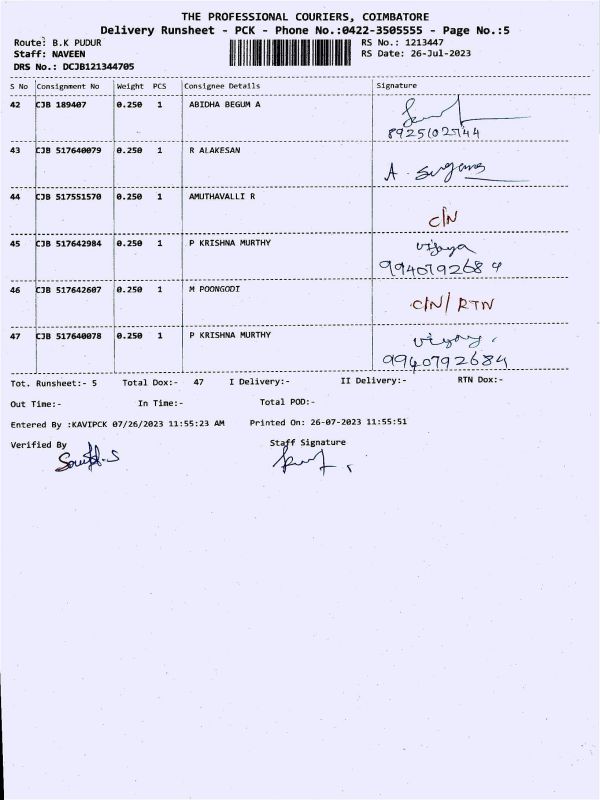 THE PROFESSIONAL COURIERS, COIMBATORE
Delivery Runsheet - PCK - Phone No.:0422-3505555 - Page No.:5
Route: B.K PUDUR RS No.: 1213447
Staff: NAVEEN RS Date: 26-Jul-2023
DRS No.: DCJB121344705
S No Consignment No Weight PCS Consignee Details Signature
42 CJB 189407 0.250 1 ABIDHA BEGUM A
8925102744
43 CJB 517640079 0.250 1 R ALAKESAN
A.
44 CJB 517551570 0.250 1 AMUTHAVALLI R
C/N
45 CJB 517642984 0.250 1 P KRISHNA MURTHY vijaya
9940792684
46 CJB 517642607 0.250 1 M POONGODI
C/N/ RTN
47 CJB 517640078 0.250 1 P KRISHNA MURTHY
9940792684
Tot. Runsheet:- 5 Total Dox:- 47 I Delivery:- II Delivery:- RTN Dox:-
Out Time:- In Time:- Total POD:-
Entered By :KAVIPCK 07/26/2023 11:55:23 AM Printed On: 26-07-2023 11:55:51
Verified By Staff Signature